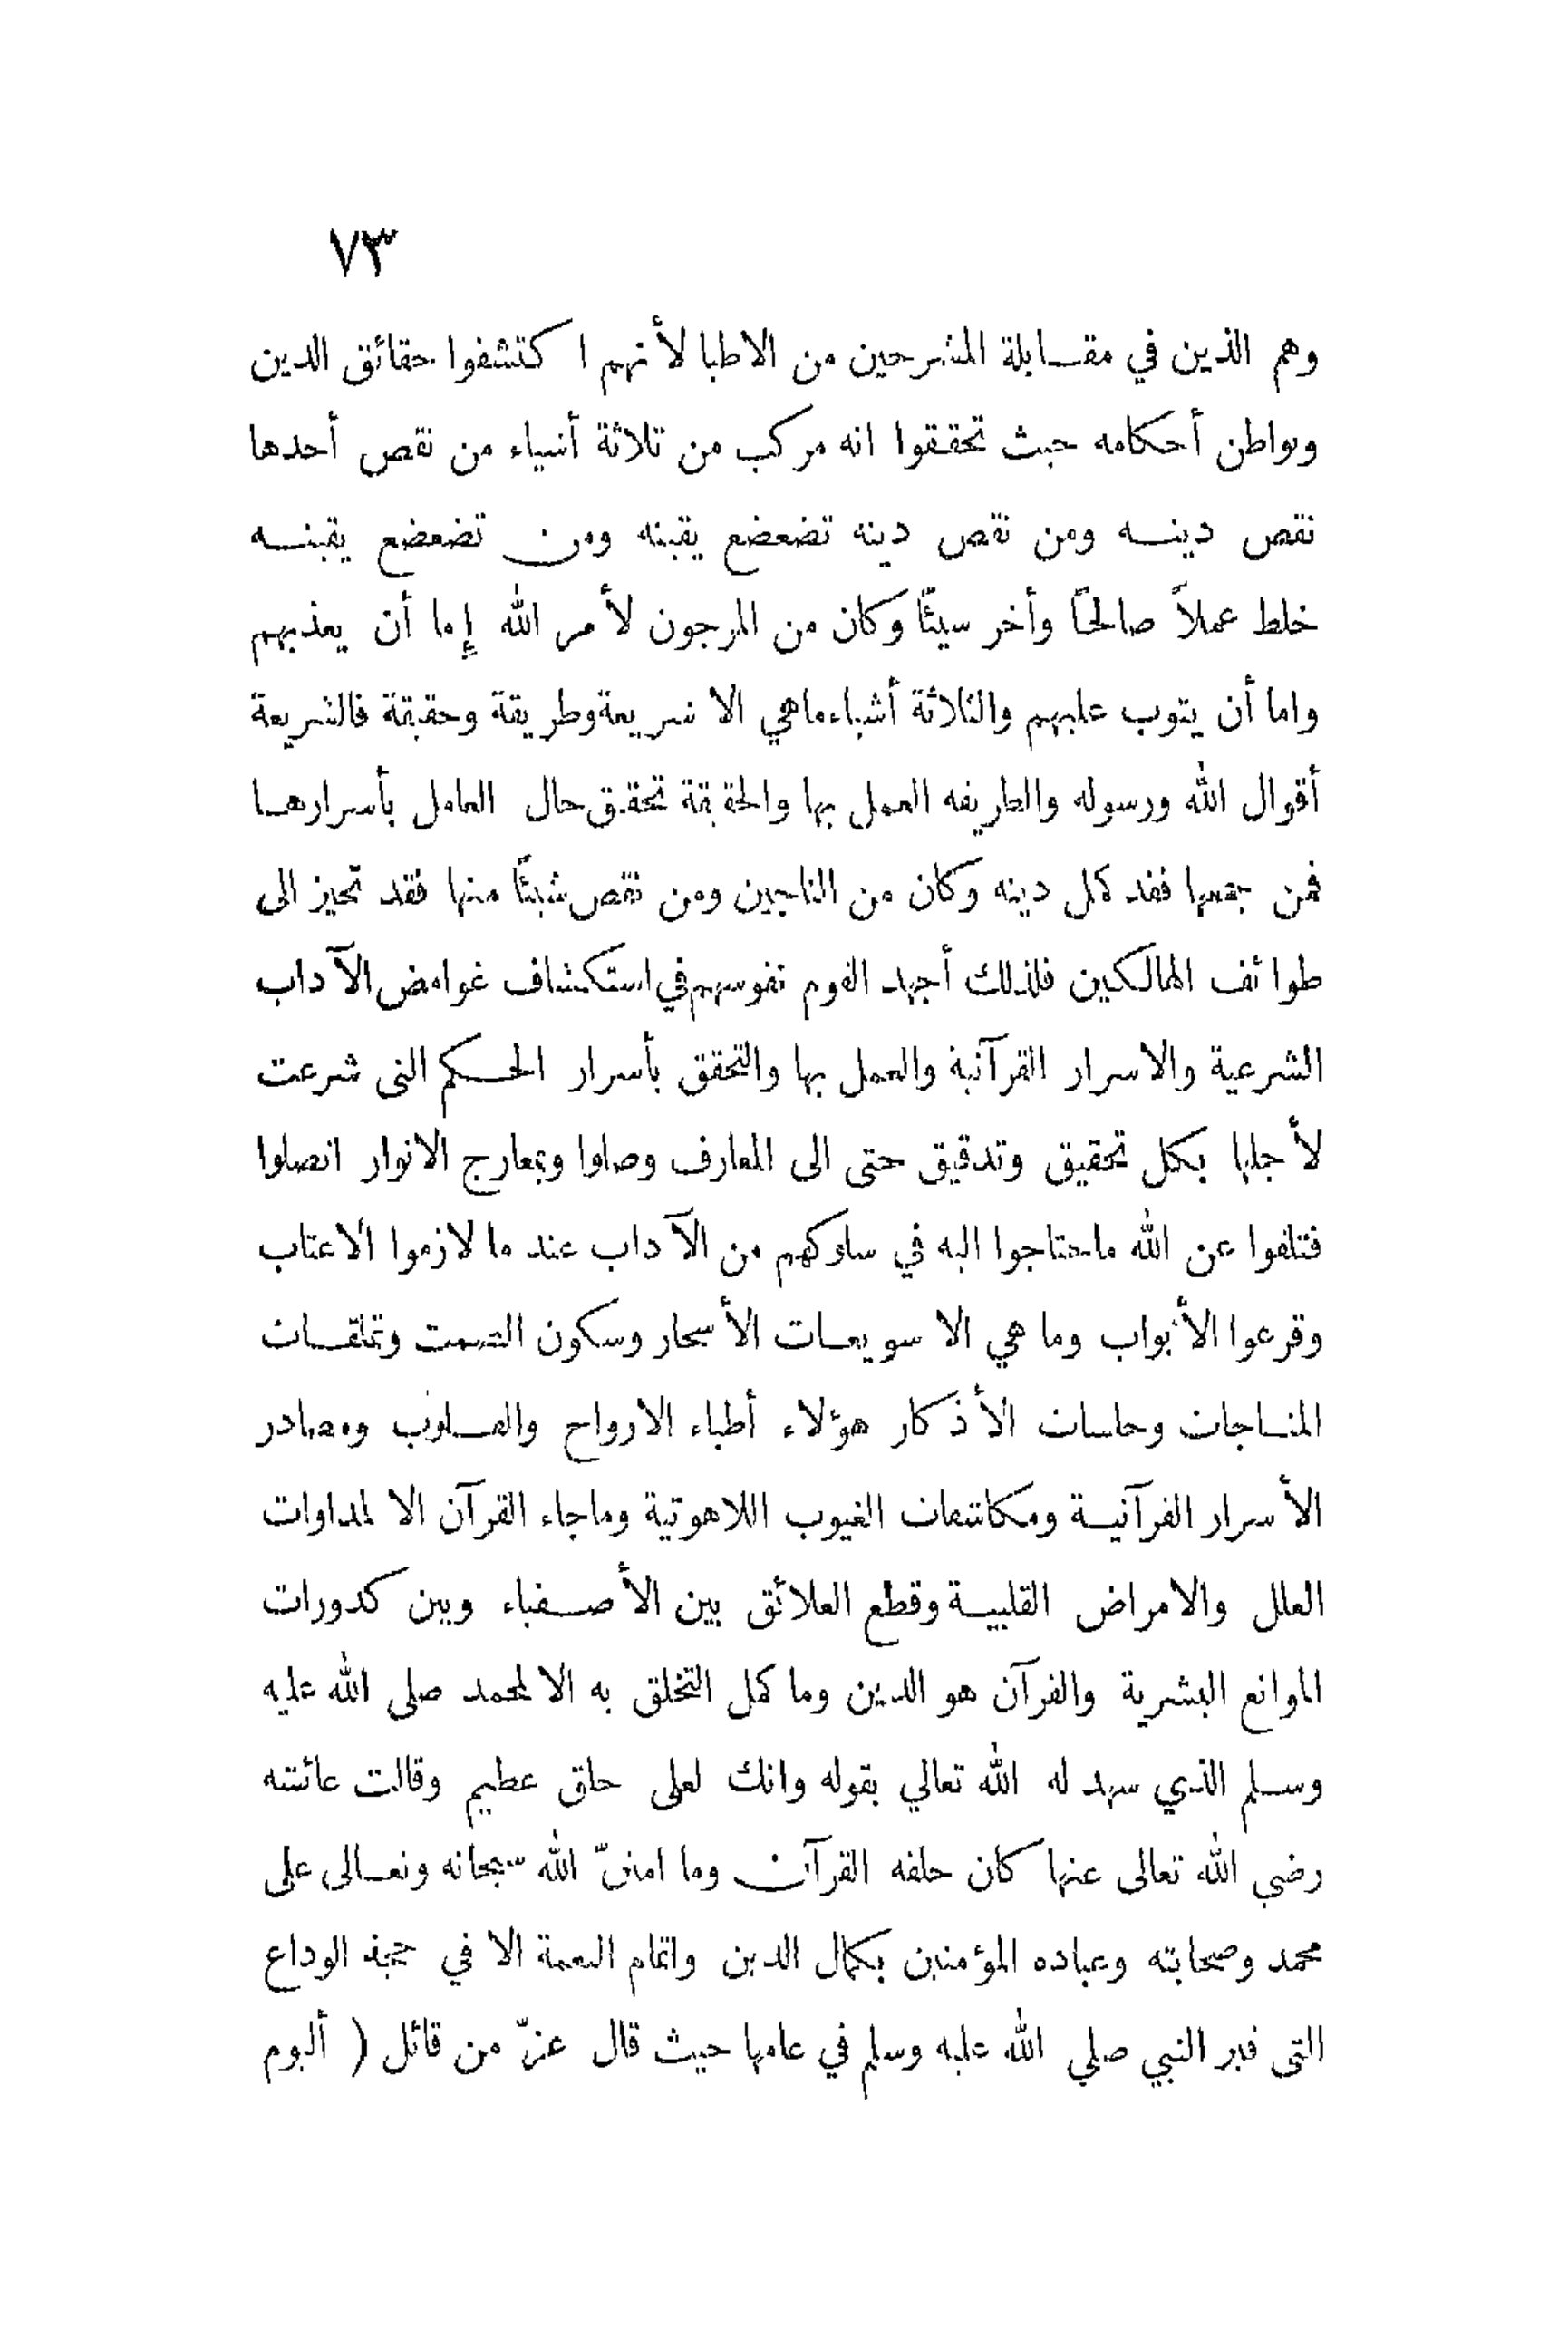 ٧٣
وهم الذين في مقابلة المشرحين من الاطبا لأنهم اكتشفوا حقائق الدين
وبواطن أحكامه حيث تحققوا انه مركب من ثلاثة أشياء من نقص أحدها
نقص دينه ومن نقص دينه تضعضع يقينه ومن تضعضع يقينه
خلط عملاً صالحاً وأخر سيئاً وكان من المرجون لأمر الله إما أن يعذبهم
واما أن يتوب عليهم والثلاثة أشياء ماهي الا شريعة وطريقة وحقيقة فالشريعة
أقوال الله ورسوله والطريقه العمل بها والحقيقة تحقق حال العامل بأسرارها
فمن جمعها فقد كمل دينه وكان من الناجين ومن نقص شيئاً منها فقد تحيز الى
طوائف الهالكين فلذلك أجهد القوم نفوسهم في استكشاف غوامض الآداب
الشرعية والاسرار القرآنية والعمل بها والتحقق بأسرار الحكم التى شرعت
لأجلها بكل تحقيق وتدقيق حتى الى المعارف وصلوا وبمعارج الانوار اتصلوا
فتلقوا عن الله ماحتاجوا اليه في سلوكهم من الآداب عند ما لازموا الاعتاب
وقرعوا الأبواب وما هي الا سويعات الأسحار وسكون الصمت وتملقات
المناجات وجلسات الأذكار هؤلاء أطباء الارواح والقلوب ومصادر
الأسرار القرآنية ومكاشفات الغيوب اللاهوتية وماجاء القرآن الا لمداوات
العلل والامراض القلبية وقطع العلائق بين الأصفياء وبين كدورات
الموانع البشرية والقرآن هو الدين وما كمل التخلق به الا لمحمد صلى الله عليه
وسلم الذي شهد له الله تعالي بقوله وانك لعلى خلق عظيم وقالت عائشه
رضي الله تعالى عنها كان خلقه القرآن وما امتنّ الله سبحانه وتعالى على
محمد وصحابته وعباده المؤمنين بكمال الدين واتمام النعمة الا في حجة الوداع
التى قبر النبي صلي الله عليه وسلم في عامها حيث قال عزّ من قائل ( أليوم